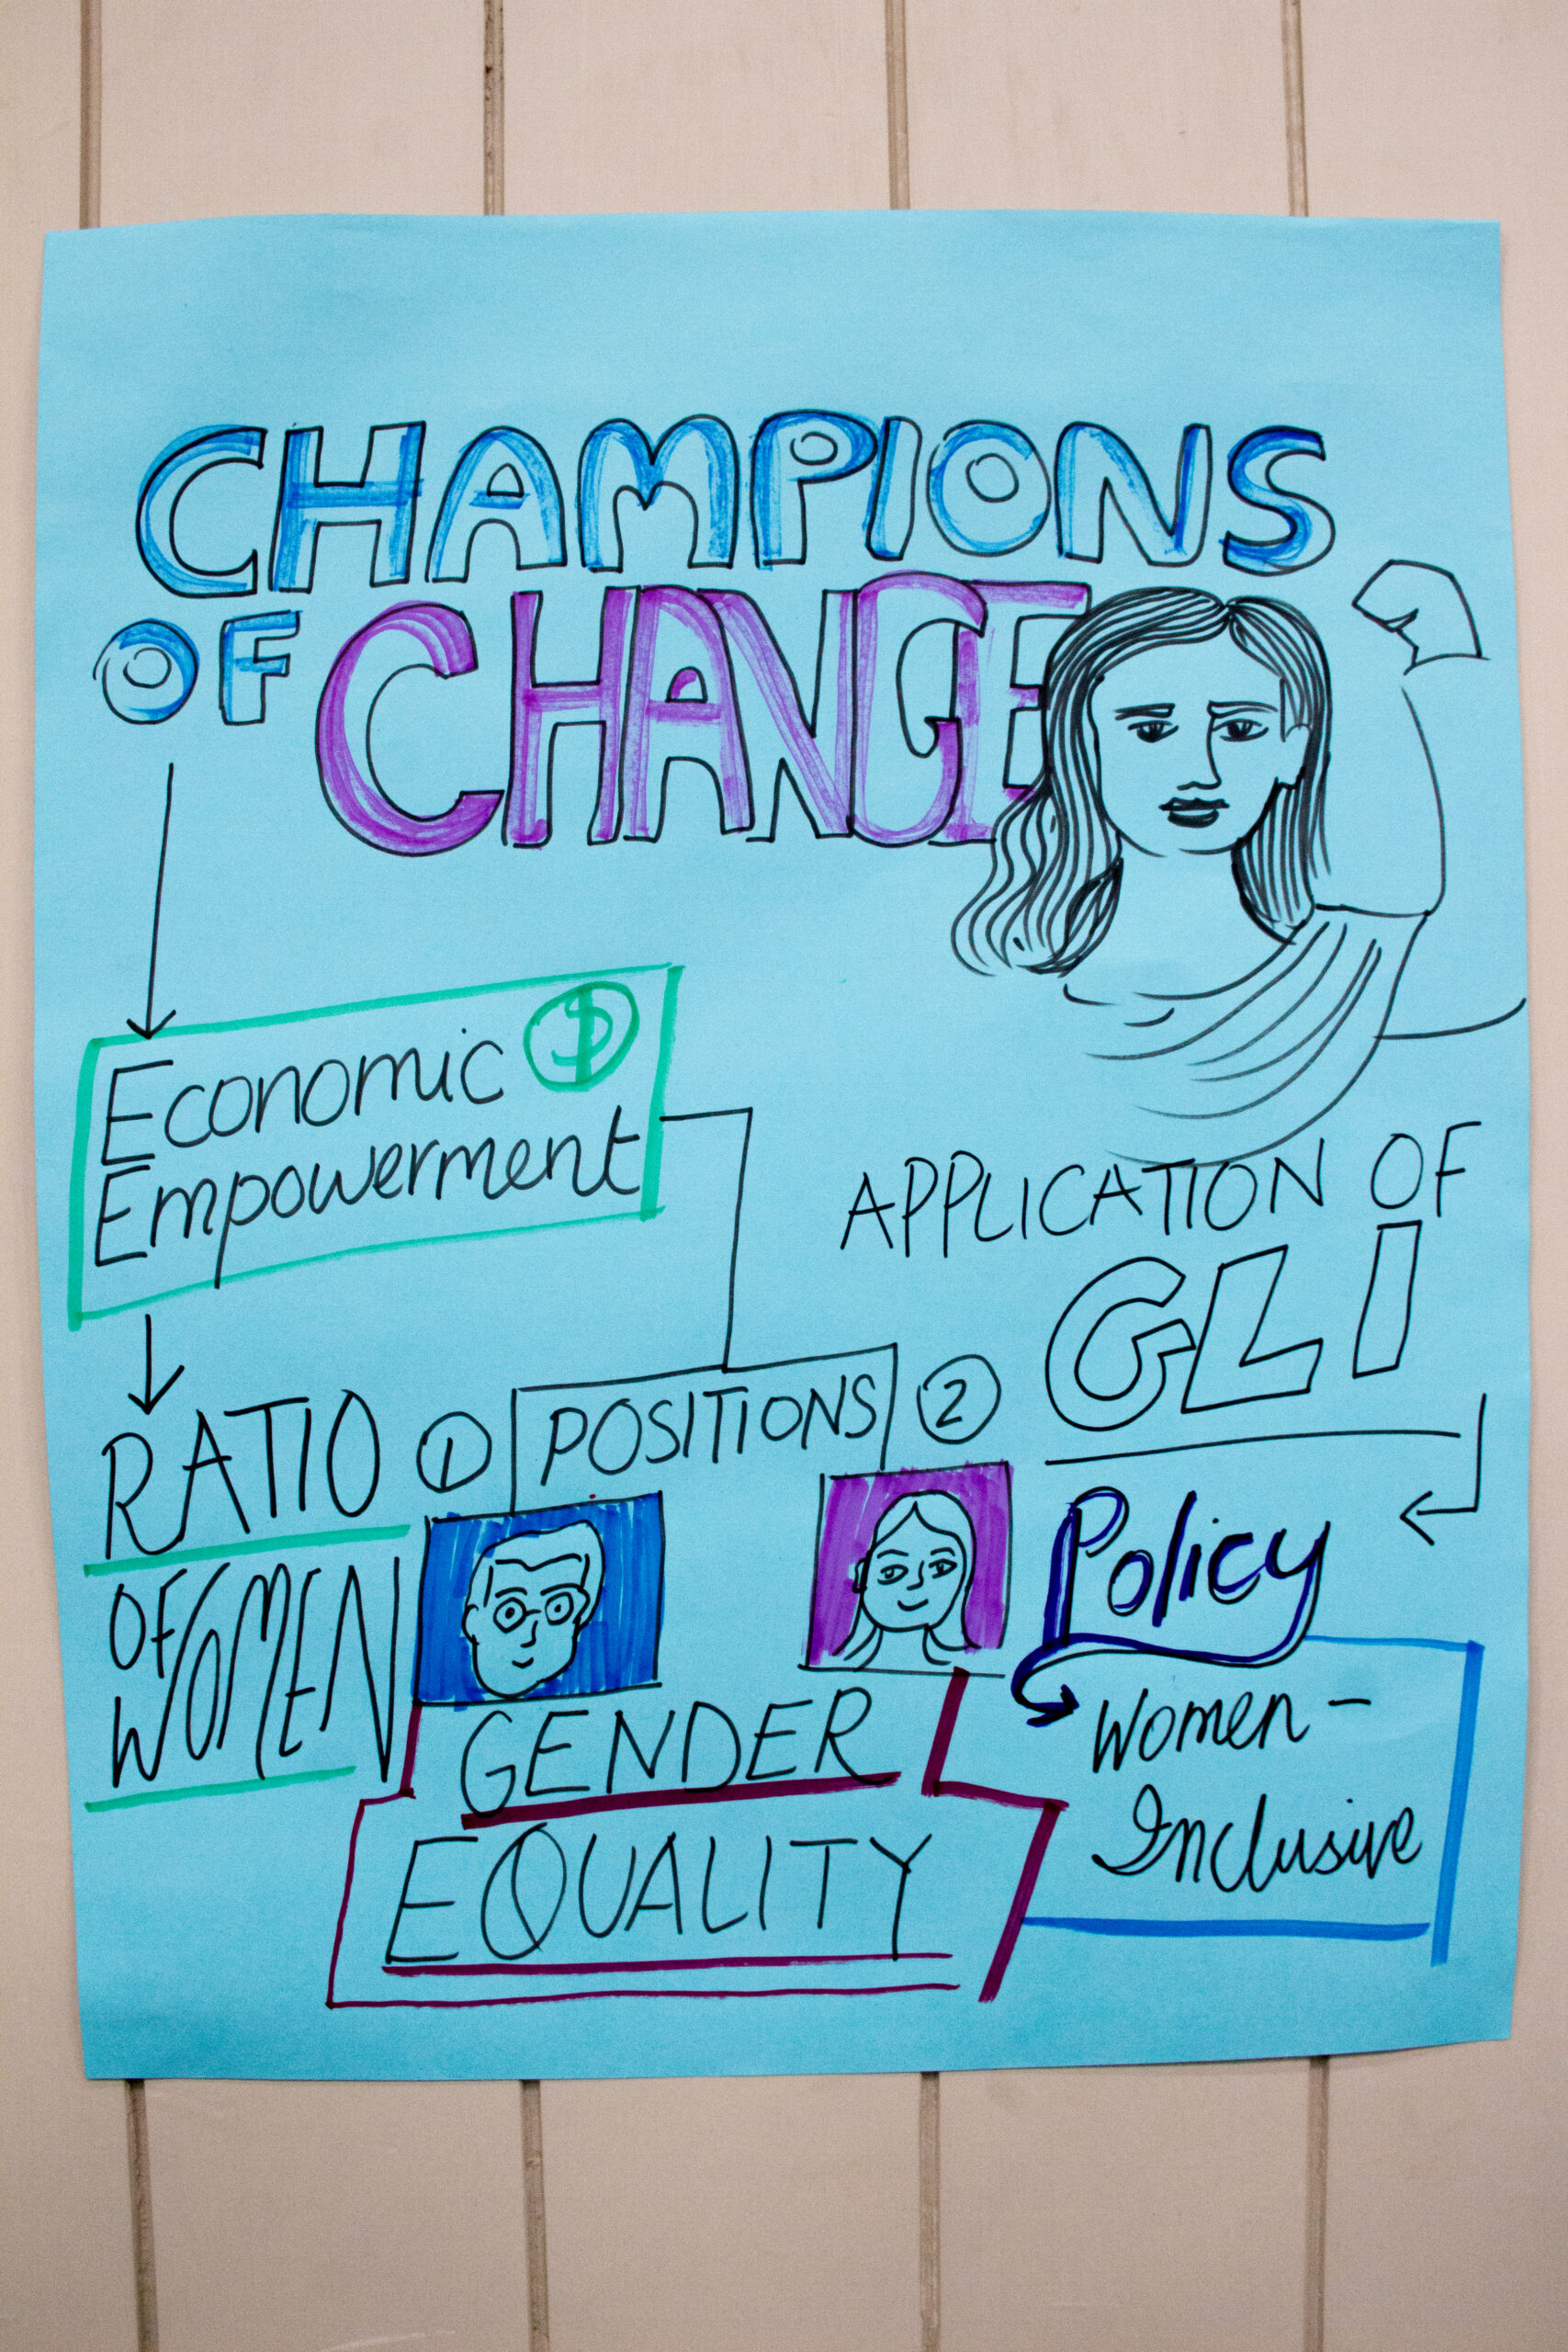 CHAMPIONS
OF CHANGE
Economic
Empowerment
RATIO
OF WOMEN
1 POSITIONS 2
GENDER
EQUALITY
APPLICATION OF
GLI
Policy
Women -
Inclusive